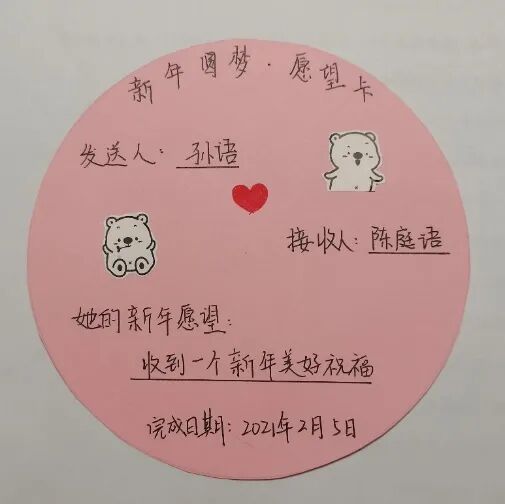 新年圆梦·愿望卡
发送人：孙语
接收人：陈庭语
她的新年愿望：
收到一个新年美好祝福
完成日期：2021年2月5日